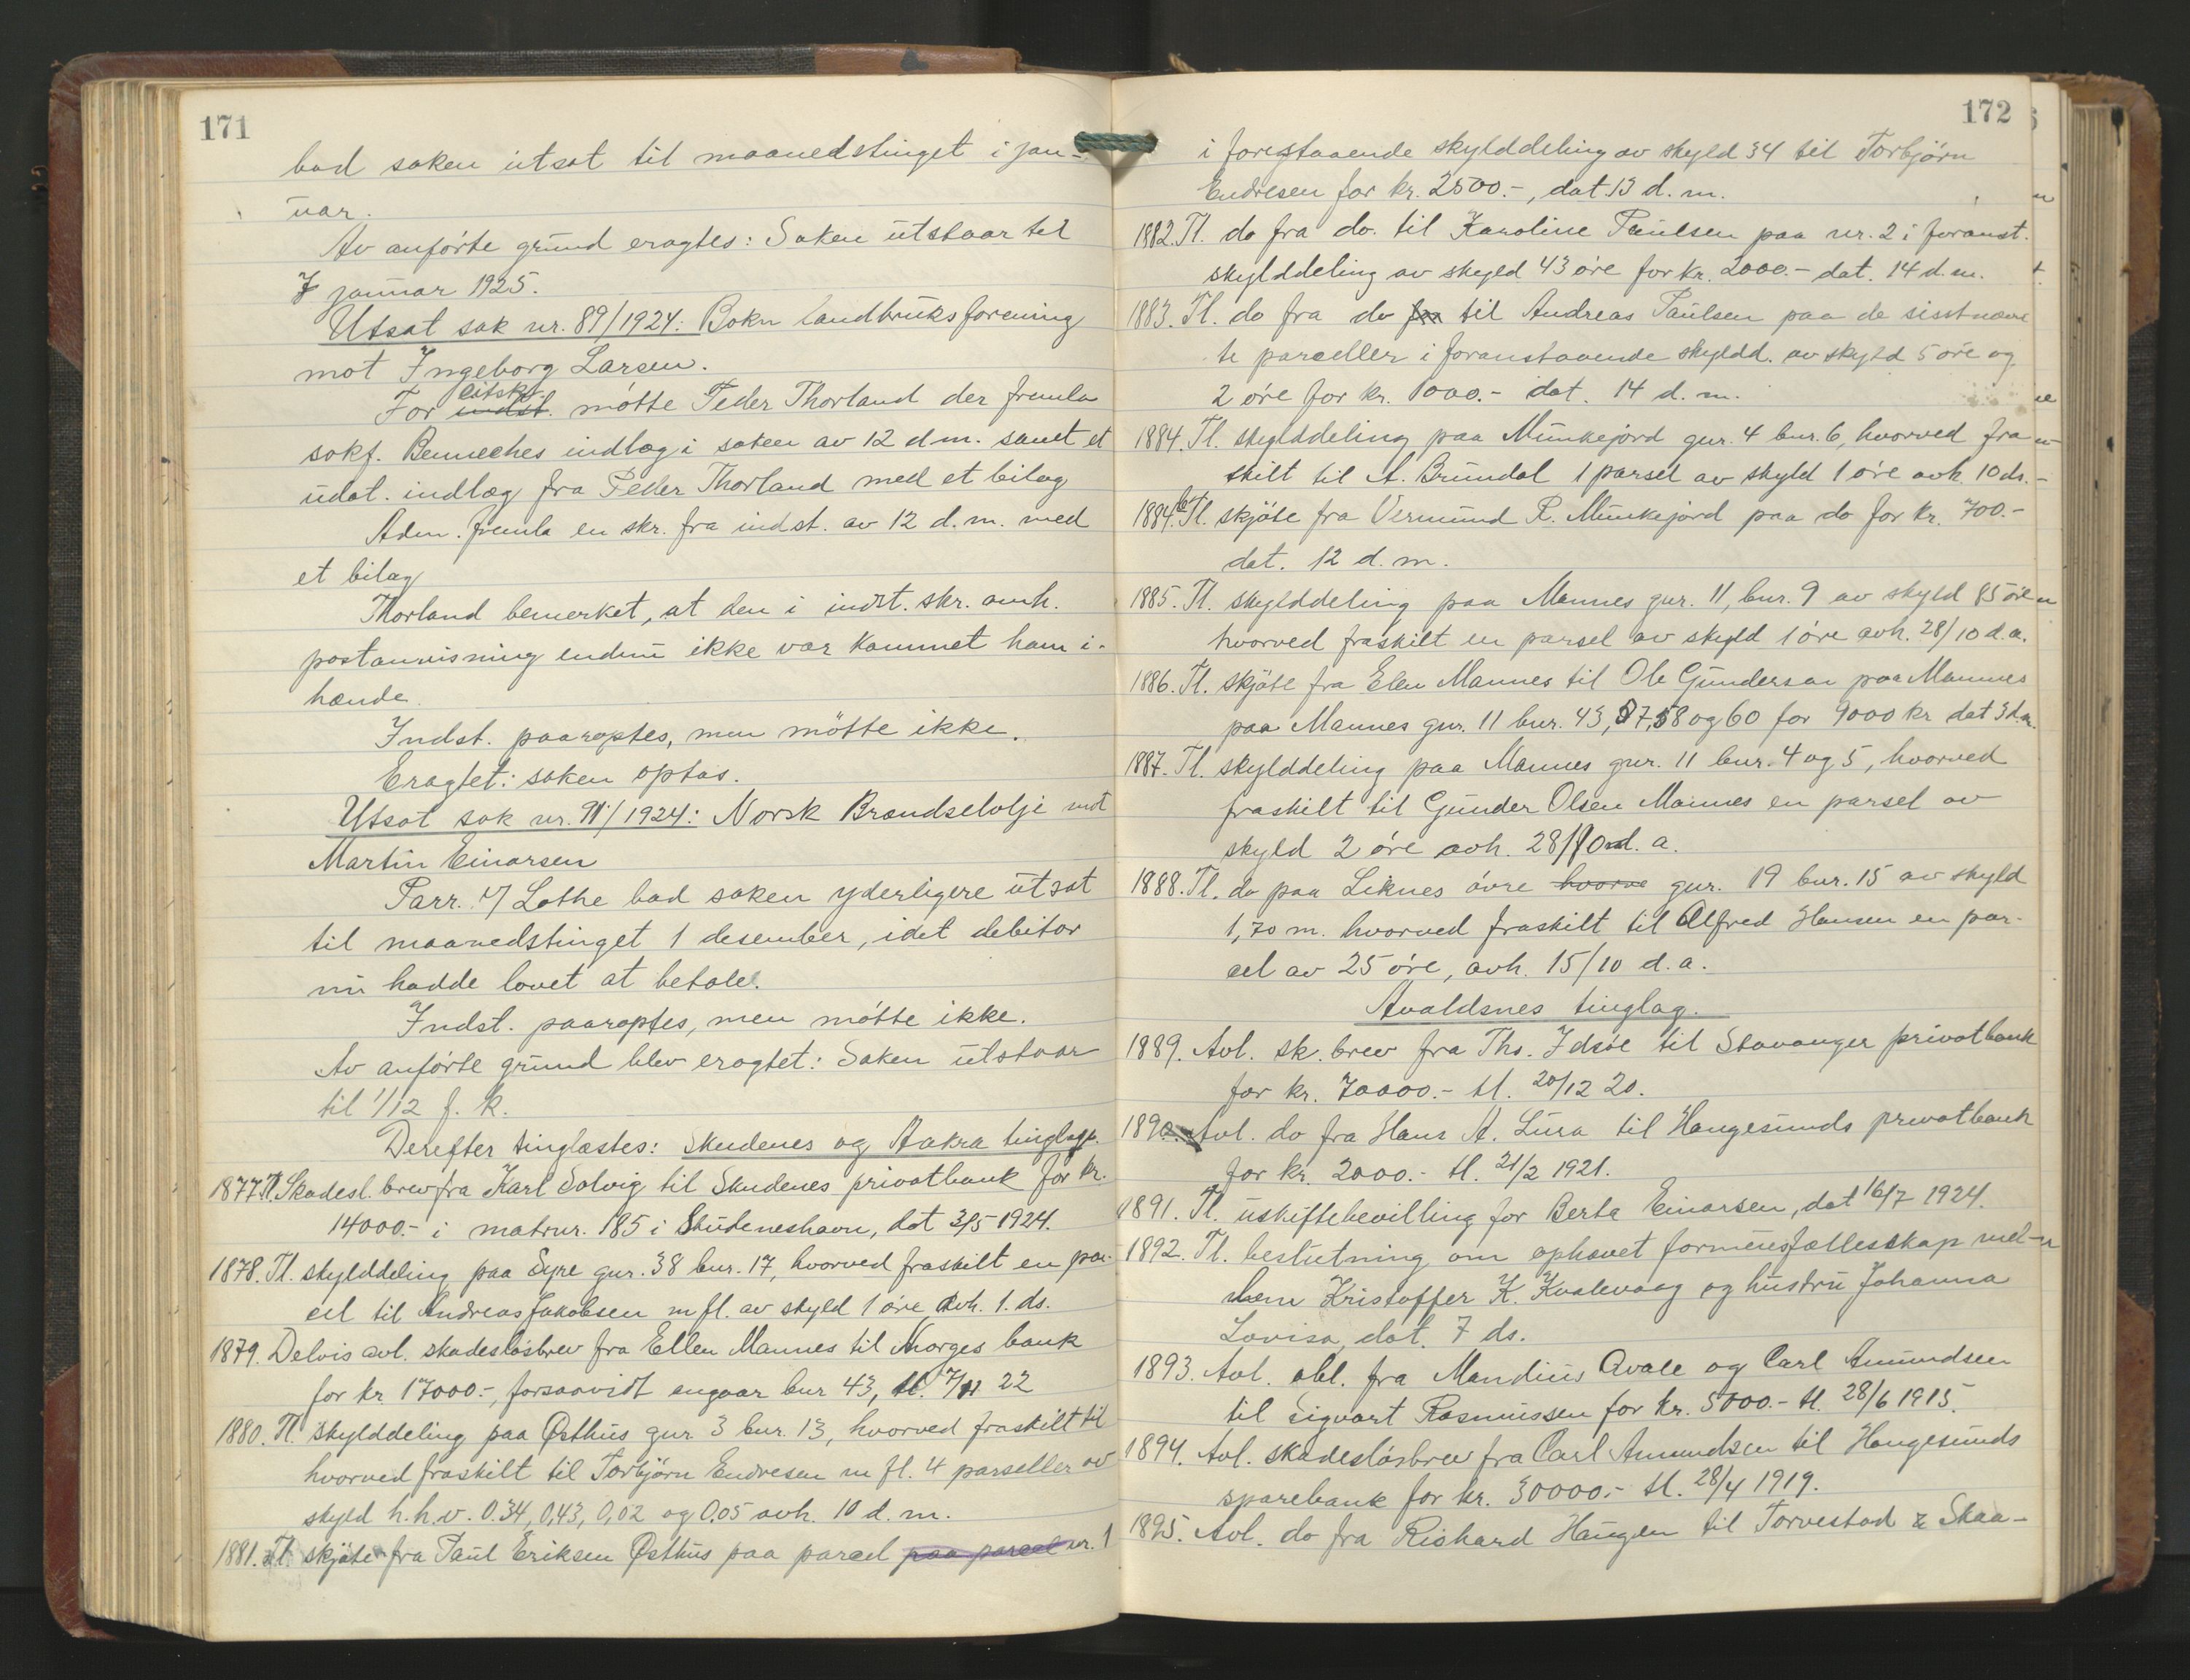 171
bad saken utsat til maanedstinget i jan-
uar.
Av anførte grund eragtes: Saken utstaar til
7 januar 1925.
Utsat sak nr. 89/1924: Bokn Landbruksforening
mot Ingeborg Larsen.
citskt.
For indst. møtte Peder Thorland der fremla
sakf. Benneches indlæg i saken av 12 d.m. samt et
udat. indlæg fra Peder Thorland med et bilag
Adm. fremla en skr. fra indst. av 12 d.m. med
et bilag
Thorland bemerket, at den i indst. skr. omh.
postanvisning endnu ikke var kommet ham i-
hænde.
Indst. paaroptes, men møtte ikke.
Eragtet: saken optas.
Utsat sak nr. 91/1924: Norsk Brændselolje mot
Martin Einarsen
Parr. v/ Lothe bad saken yderligere utsat
til maanedstinget 1 desember, idet debitor
nu hadde lovet at betale.
Indst. paaroptes, men møtte ikke.
Av anførte grund blev eragtet: Saken utstaar
til 1/12 f. k.
Derefter tinglæstes: Skudenes og Aakra tinglag.
1877. Tl. Skadesl. brev fra Karl Solvig til Skudenes privatbank for kr.
14000.- i matrnr. 185 i Skudeneshavn, dat 3/5 1924.
1878. Tl. skylddeling paa Syre gnr. 38 bnr. 17, hvorved fraskilt en par-
cel til Andreas Jakobsen m fl. av skyld 1 øre avh. 1. ds.
1879. Delvis avl. skadesløsbrev fra Ellen Mannes til Norges bank
for kr 17000.-, forsaavidt angaar bnr 43, tl. 7/11 22
1880. Tl. skylddeling paa Østhus gnr. 3 bnr. 13, hvorved fraskilt til
hvorved fraskilt til Torbjørn Endresen m fl. 4 parseller av
skyld h.h.v. 0.34, 0,43, 0,02 og 0.05 avh. 10 d. m.
1881. Tl. skjøte fra Paul Eriksen Østhus paa parcel paa parcel nr. 1
172
i forestaaende skylddeling av skyld 34 til Torbjørn
Endresen for kr. 2500.-, dat. 13 d. m.
1882. Tl. do fra do. til Karoline Paulsen paa nr. 2 i foranst.
skylddeling av skyld 43 øre for kr. 2000.- dat. 14 d. m.
1883. Tl. do fra do fra til Andreas Paulsen paa de sisstnævn
te parceller i foranstaaende skyldd. av skyld 5 øre og
2 øre for kr. 1000.- dat. 14 d. m.
1884. Tl. skylddeling paa Munkejord gnr. 4 bnr. 6, hvorved fra
skilt til A. Brundal 1 parsel av skyld 1 øre avh. 10 ds.-
1884.b Tl. skjøte fra Vermund R. Munkejord paa do for kr. 700.-
dat. 12 d. m.
1885. Tl. skylddeling paa Mannes gnr. 11, bnr. 9 av skyld 85 øre
hvorved fraskilt en parsel av skyld 1 øre avh. 28/10 d.a.
1886. Tl. skjøte fra Elen Mannes til Ole Gundersen paa Mannes
paa Mannes gnr. 11 bnr. 43, 57, 58 og 60 for 9000 kr dat 3 d.m.
1887. Tl. skylddeling paa Mannes gnr. 11 bnr. 4 og 5, hvorved
fraskilt til Gunder Olsen Mannes en parsel av
skyld 2 øre avh. 28/10 d. a.
1888. Tl. do paa Liknes øvre hvorve gnr. 19 bnr. 15 av skyld
1,70 m. hvorved fraskilt til Alfred Hansen en par-
cel av 25 øre, avh. 15/10 d. a.
Avaldsnes tinglag.
1889. Avl. sk. brev fra Ths. Idsøe til Stavanger privatbank
for kr. 70000.- tl. 20/12 20.
1890. Avl. do fra Hans A. Lura til Haugesunds privatbank
for kr. 2000.- tl. 21/2 1921.
1891. Tl. uskiftebevilling for Berta Einarsen, dat 16/7 1924.
1892. Tl. beslutning om ophævet formuesfællesskap mel-
lem Kristoffer K. Kvalevaag og hustru Johanna
Lovisa, dat. 7 ds.
1893. Avl. obl. fra Mandius Avale og Carl Amundsen
til Sigvart Rasmussen for kr. 5000.- tl. 28/6 1915.
1894. Avl. skadesløsbrev fra Carl Amundsen til Haugesunds
sparebank for kr. 30000.- tl. 28/4 1919.
1895. Avl. do fra Rishard Haugen til Torvestad & Skaa-